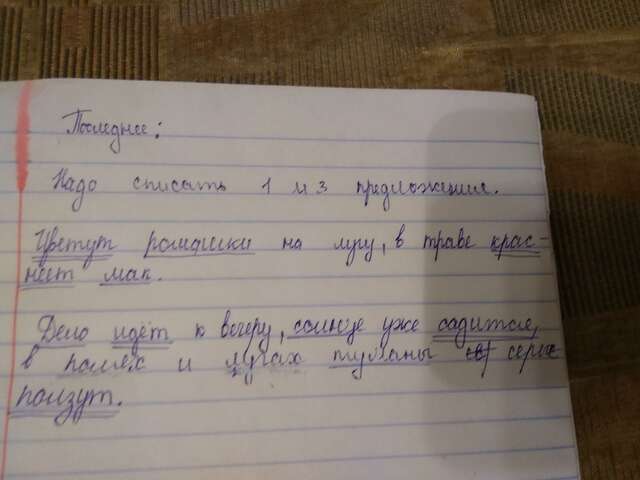 Последнее:
Надо списать 1 и 3 предложение.
Цветут ромашки на лугу, в траве крас-
неет мак.
Дело идёт к вечеру, солнце уже садится,
в полях и лугах туманы серые
ползут.